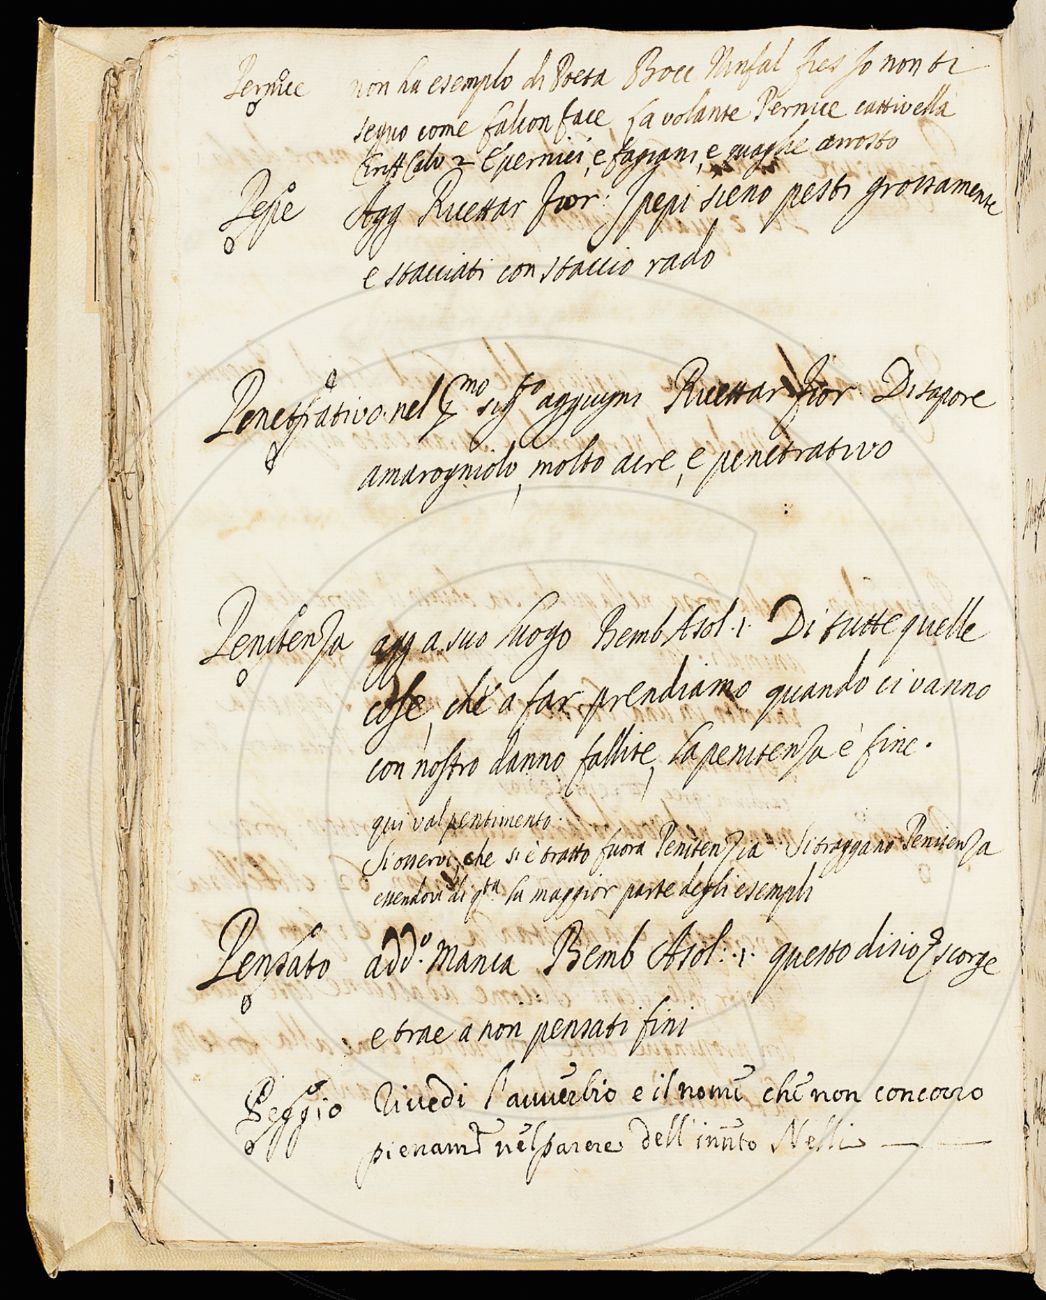 Pernice non ha esemplo di Poeta Bocc Ninfal Fies Io non ti
seguo come falcon face la volante Pernice cattivella
Ciriff Calv 2 E pernici, e fagiani, e quaglie arrosto
Pepe Agg Ricettar Fior: I pepi sieno pesti grossamente
e stacciati con staccio rado
Penetrativo nel pmo sigto aggiugni Ricettar Fior Di sapore
amarogniolo, molto acre, e penetrativo
Penitenza agg a suo luogo Bemb Asol. 1. Di tutte quelle
cose, che a far prendiamo quando ci vanno
con nostro danno fallite, la penitenza è fine.
qui val pentimento.
Si osservi, che si è tratto fuora Penitenzia Si traggano Penitenza
essendovi di qta la maggior parte degli esempli
Pensato addo. Manca Bemb Asol: 1. questo disio scorge
e trae a non pensati fini
Peggio Rivedi l'avverbio e il nome che non concorro
pienamte nel parere dell' innto Nelli